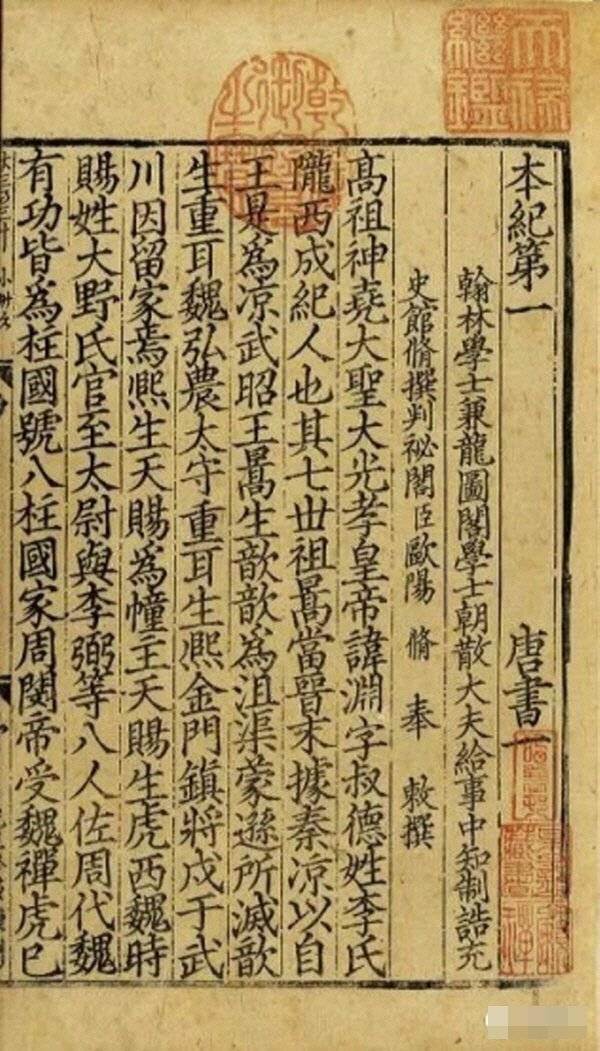 本紀第一　唐書一
翰林學士兼龍圖閣學士朝散大夫給事中知制誥充
史館脩撰判祕閣臣歐陽　脩　奉　敕撰
高祖神堯大聖大光孝皇帝諱淵字叔德姓李氏
隴西成紀人也其七世祖暠當晉末據秦涼以自
王是為涼武昭王暠生歆歆為沮渠蒙遜所滅歆
生重耳魏弘農太守重耳生熙金門鎮將戍于武
川因留家焉熙生天賜為幢主天賜生虎西魏時
賜姓大野氏官至太尉與李弼等八人佐周代魏
有功皆為柱國號八柱國家周閔帝受魏禪虎已